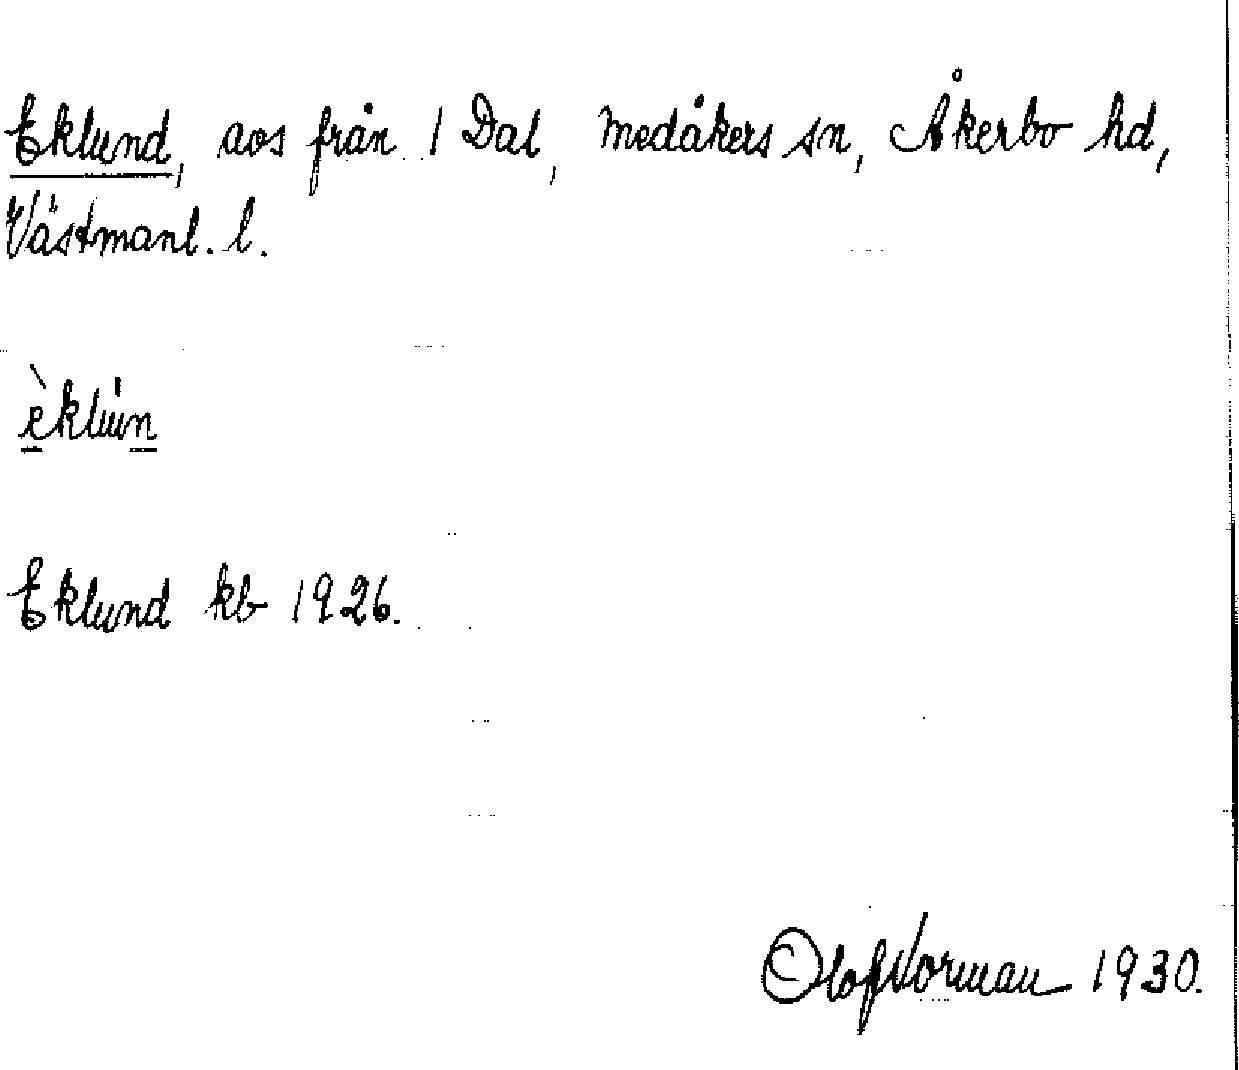 Eklund, aos från 1 Dal, Medåkers sn, Åkerbo hd,
Västmanl. l.
èklun
Eklund kb 1926.
Olof Norman 1930.